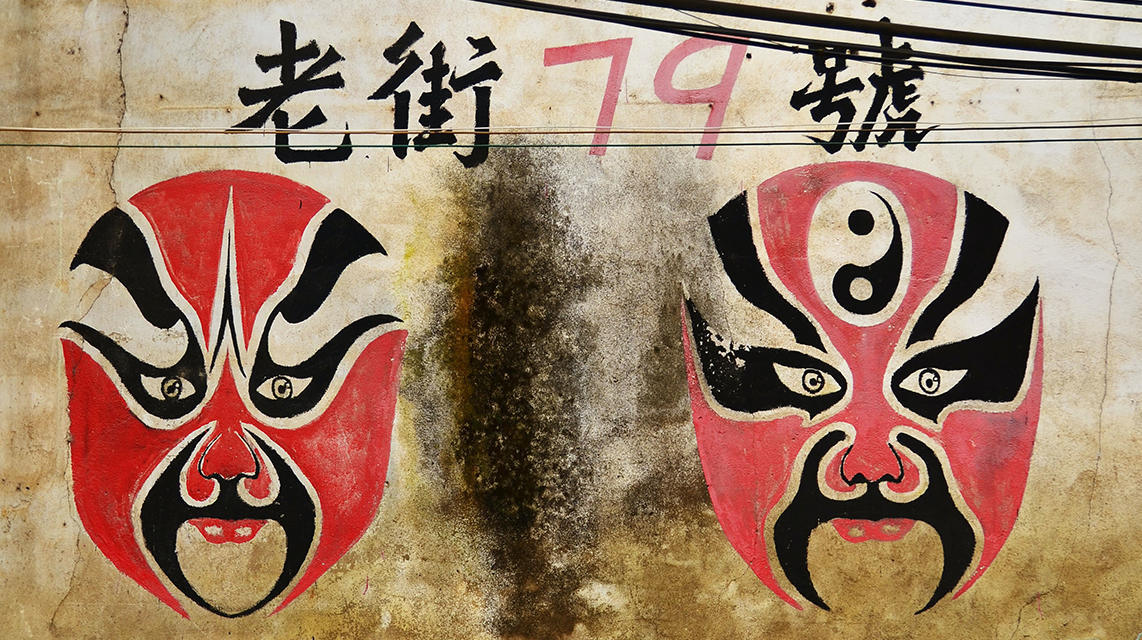 老街79號